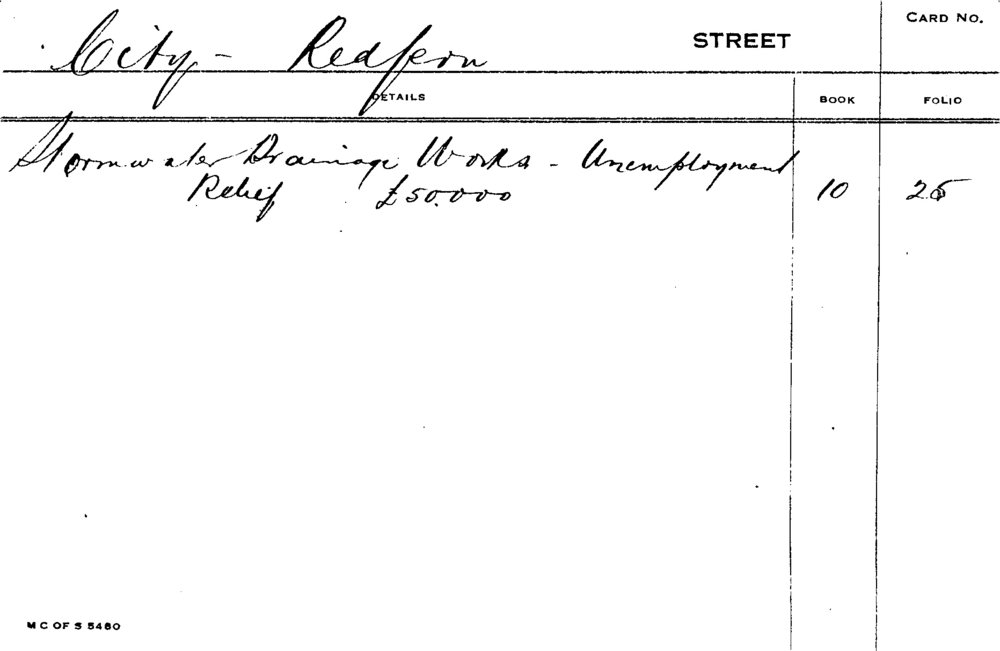 City - Redfern STREET CARD NO.
DETAILS BOOK FOLIO
Stormwater Drainage Works - Unemployment
Relief £50.000 10 25
M C OF S 5460